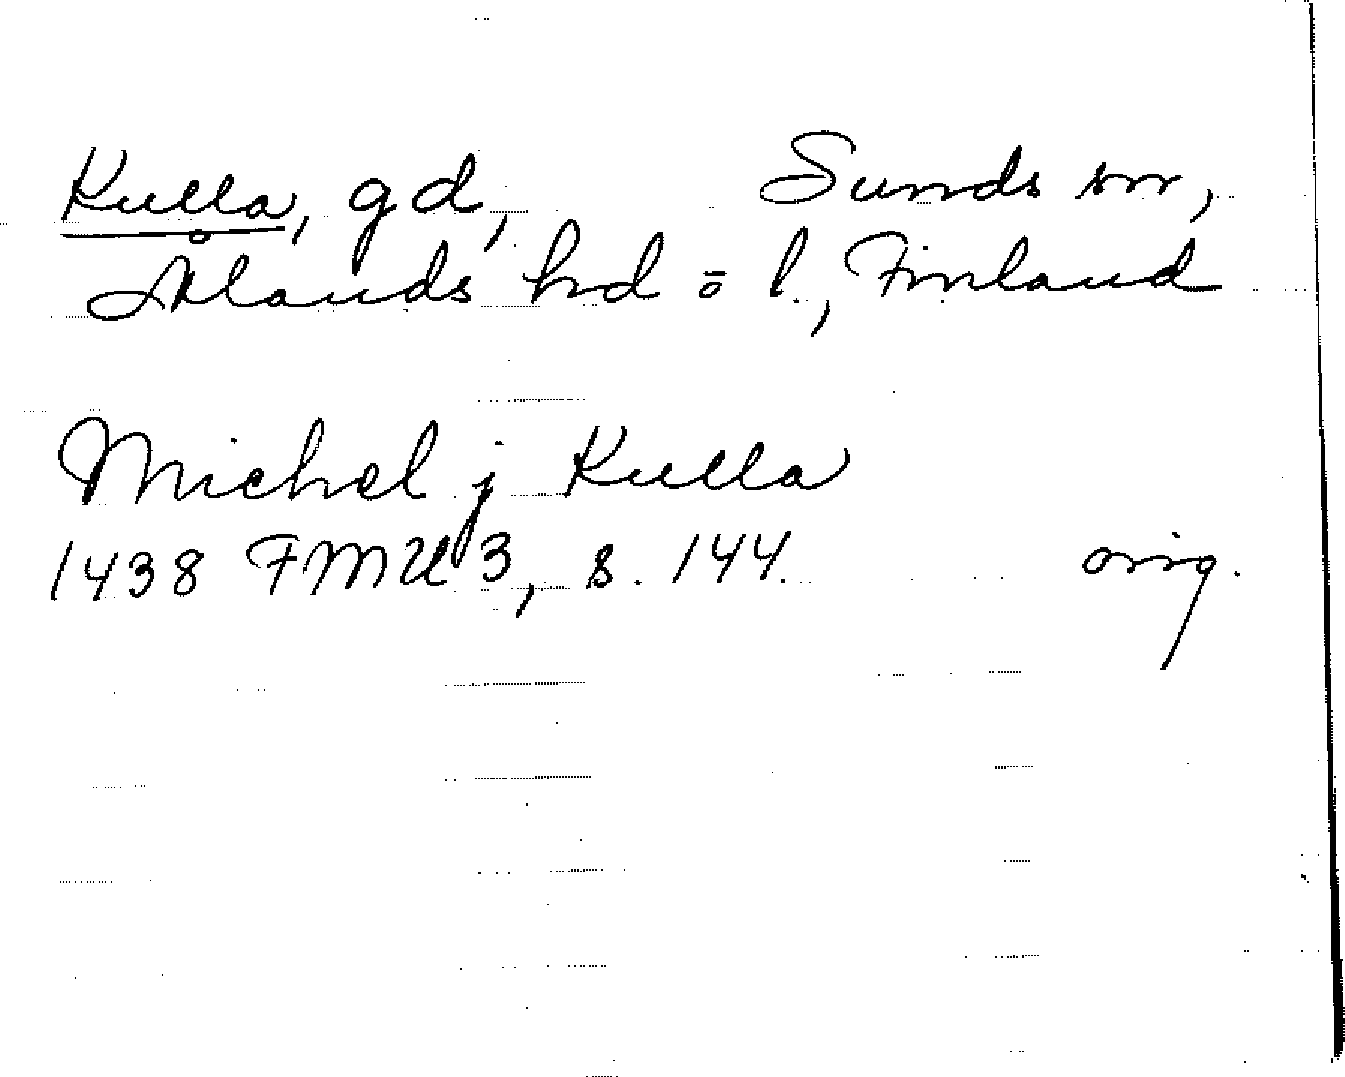 Kulla, gd, Sunds sn,
Ålands hd o l., Finland
Michel j Kulla
1438 FMU 3, s. 144. orig.